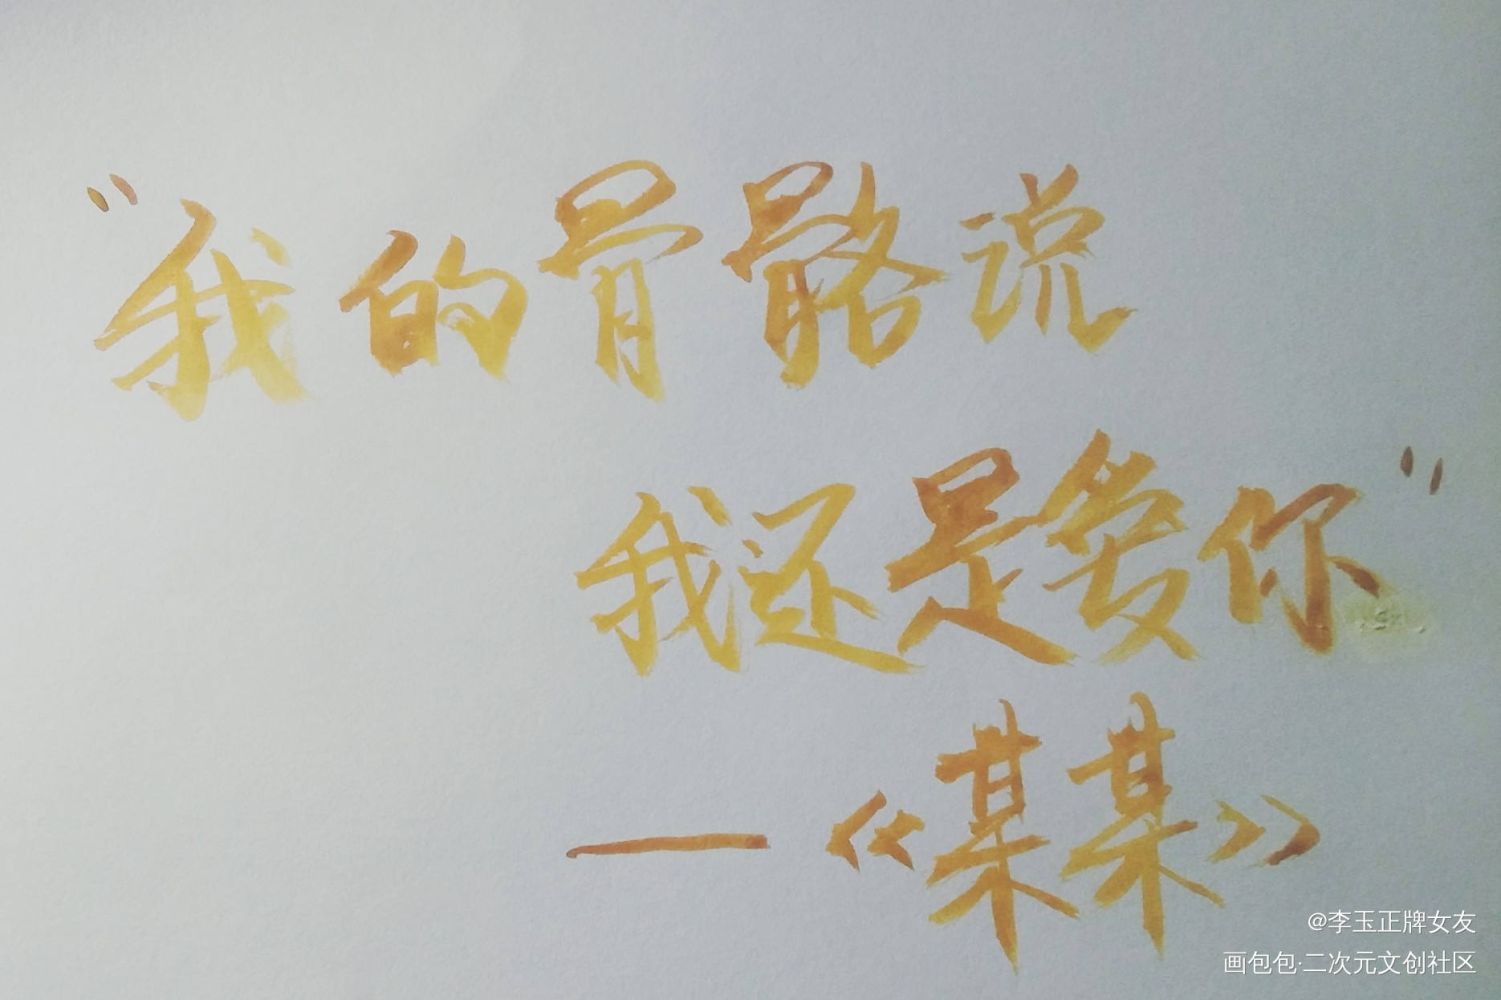 "我的骨骼说
我还是爱你"
—《某某》
@李玉正牌女友
画包包·二次元文创社区